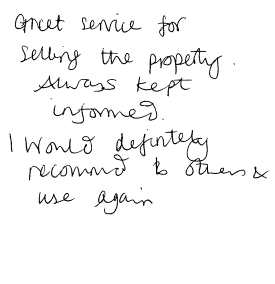 Great service for
selling the property.
Always kept
informed.
I Would definitely
recommend to others &
use again